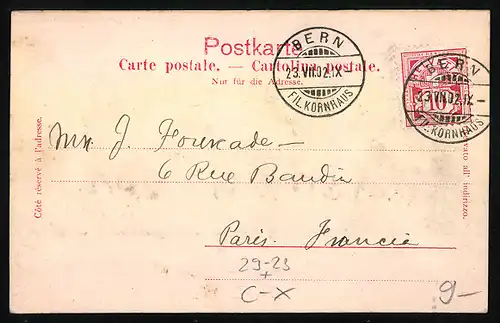 Postkarte
Carte postale. — Cartolina postale.
Nur für die Adresse.
BERN
23.VII.02.IX
FIL.KORNHAUS
BERN
23.VII.02.IX –
FIL.KORNHAUS
Côté réservé à l'adresse.
J. Fourcade –
6 Rue Baudin
Paris. Francia
all' indirizzo.
29-23
+
C-X
9-